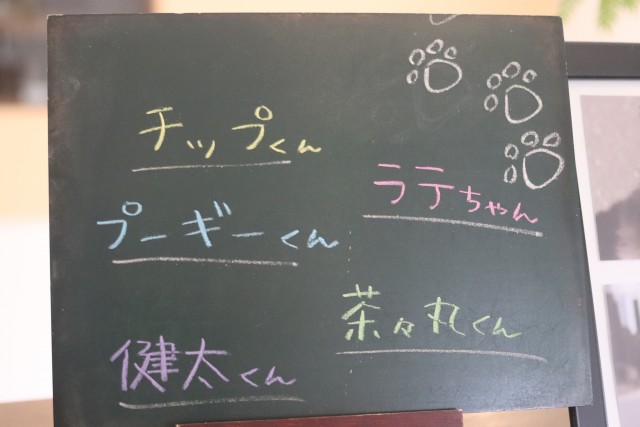 チップくん
ラテちゃん
プーギーくん
茶々丸くん
健太くん